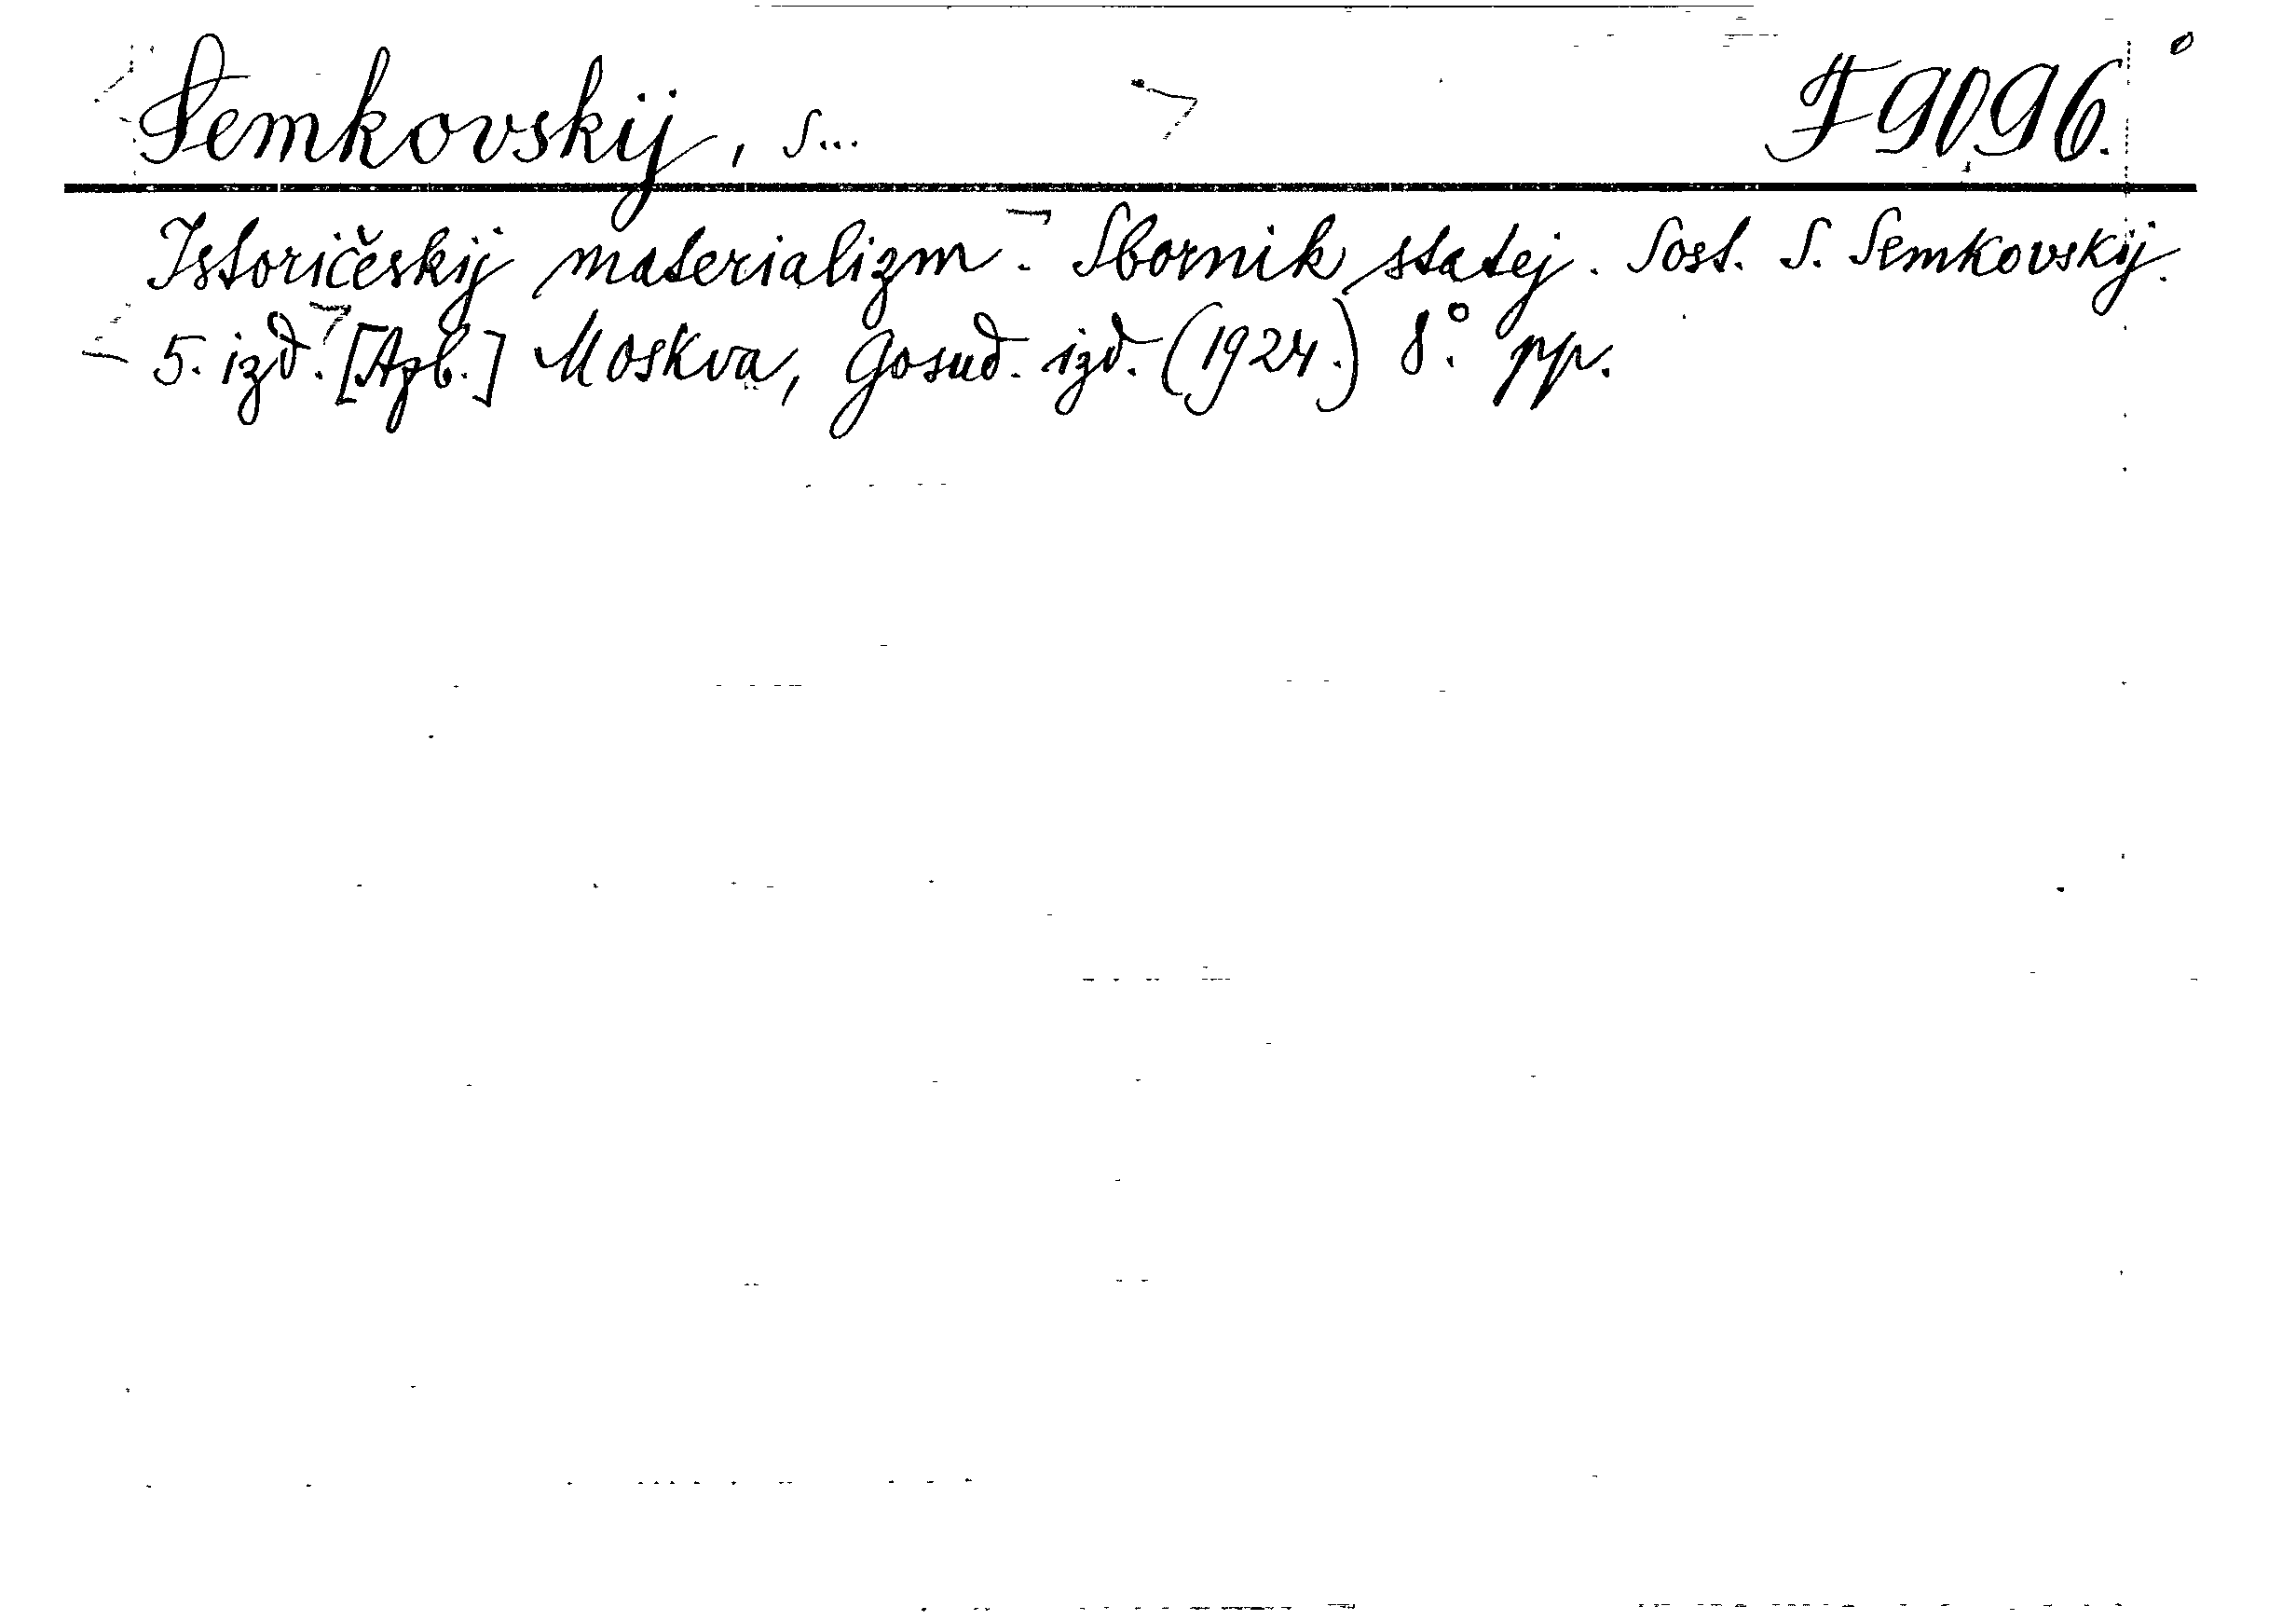 Semkovskij, S... F 9096.
Istoričeskij materializm. Sbornik statej. Sost. S. Semkovskij.
5. izd. [Azb.] Moskva, Gosud. izd. (1924.) 8° pp.